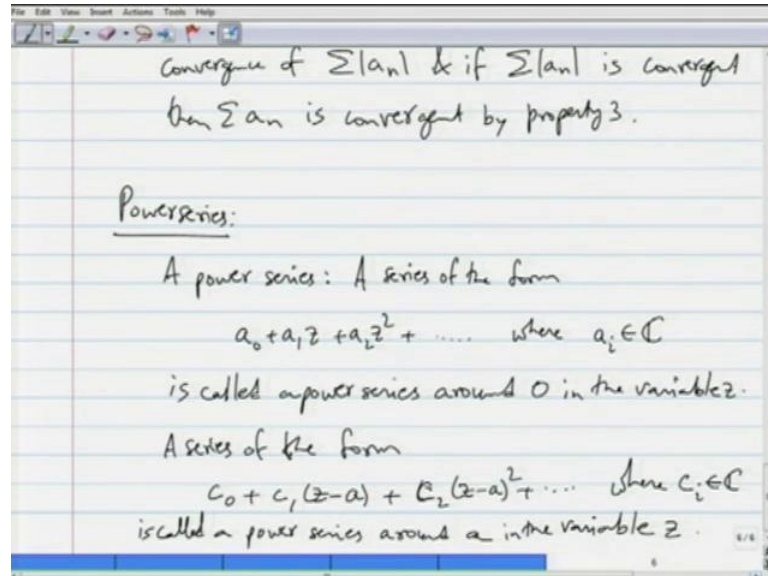 File Edit View Insert Actions Tools Help
convergence of Σ|aₙ| & if Σ|aₙ| is convergent
then Σ aₙ is convergent by property 3.
Powerseries:
A power series : A series of the form
a₀ + a₁ z + a₂ z² + ..... where aᵢ ∈ ℂ
is called a power series around 0 in the variable z.
A series of the form
c₀ + c₁ (z-a) + c₂ (z-a)² + .... where cᵢ ∈ ℂ
is called a power series around a in the variable z.
6/6
6